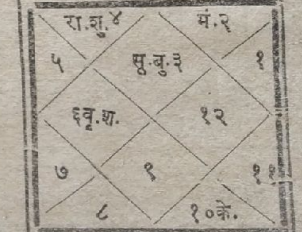 रा.शु.४ मं.२
५ सू.बु.३ १
६वृ.श. १२
७ ९ ११
८ १०के.